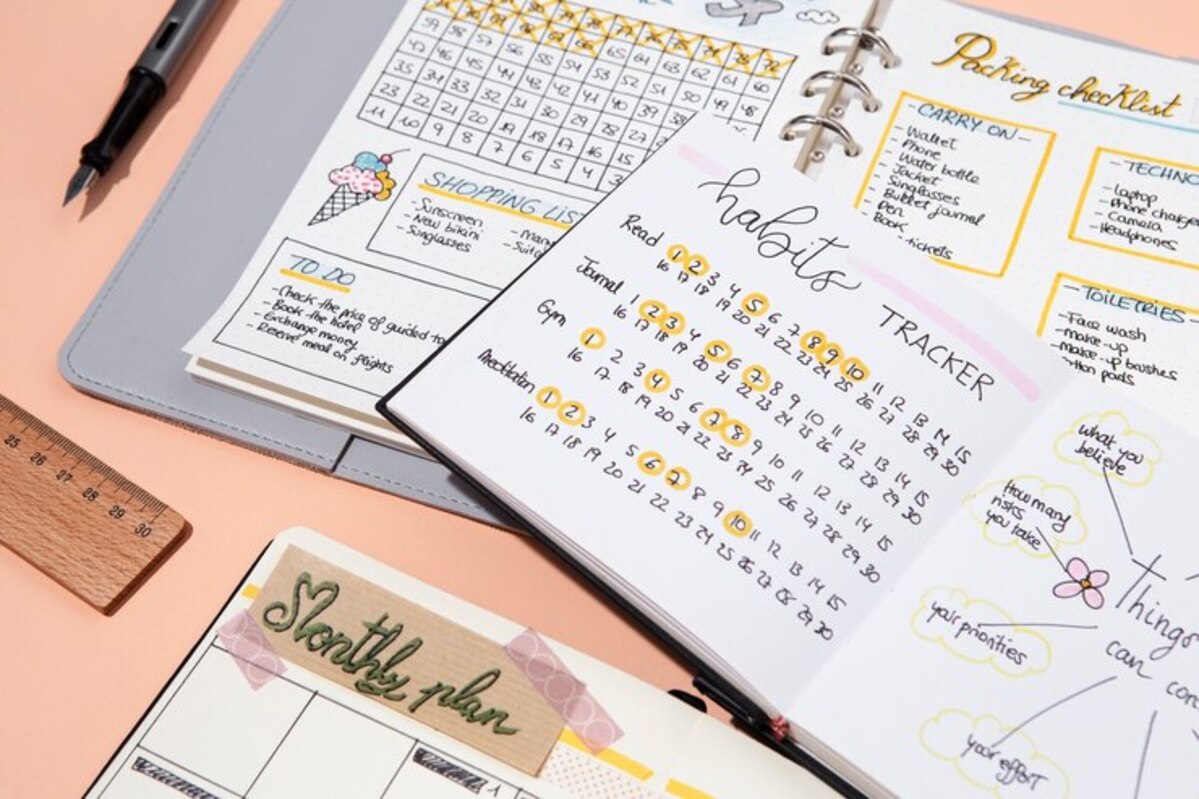 SHOPPING LIST
- Sunscreen
- New bikini
- Sunglasses
TO DO
- Check the price of guided to
- Book the hotel
- Exchange money
- Reserve meal on flights
Packing checklist
- CARRY ON -
- Wallet
- Phone
- Water bottle
- Jacket
- Sunglasses
- Bullet journal
- Pen
- Book
-tickets
- TECHNO
- Laptop
- Phone charger
- Camera
- Headphones
- TOILETRIES -
- Face wash
- make-up
- make-up brushes
habits
TRACKER
Read 1 2 3 4 5 6 7 8 9 10 11 12 13 14 15
16 17 18 19 20 21 22 23 24 25 26 27 28 29 30
Journal 1 2 3 4 5 6 7 8 9 10 11 12 13 14 15
16 17 18 19 20 21 22 23 24 25 26 27 28 29 30
Gym 1 2 3 4 5 6 7 8 9 10 11 12 13 14 15
16 17 18 19 20 21 22 23 24 25 26 27 28 29 30
Meditation 1 2 3 4 5 6 7 8 9 10 11 12 13 14 15
16 17 18 19 20 21 22 23 24 25 26 27 28 29 30
what you
believe
How many
risks
you take
your priorities
your effort
Things
can con
25 26 27 28 29 30
Monthly plan
1